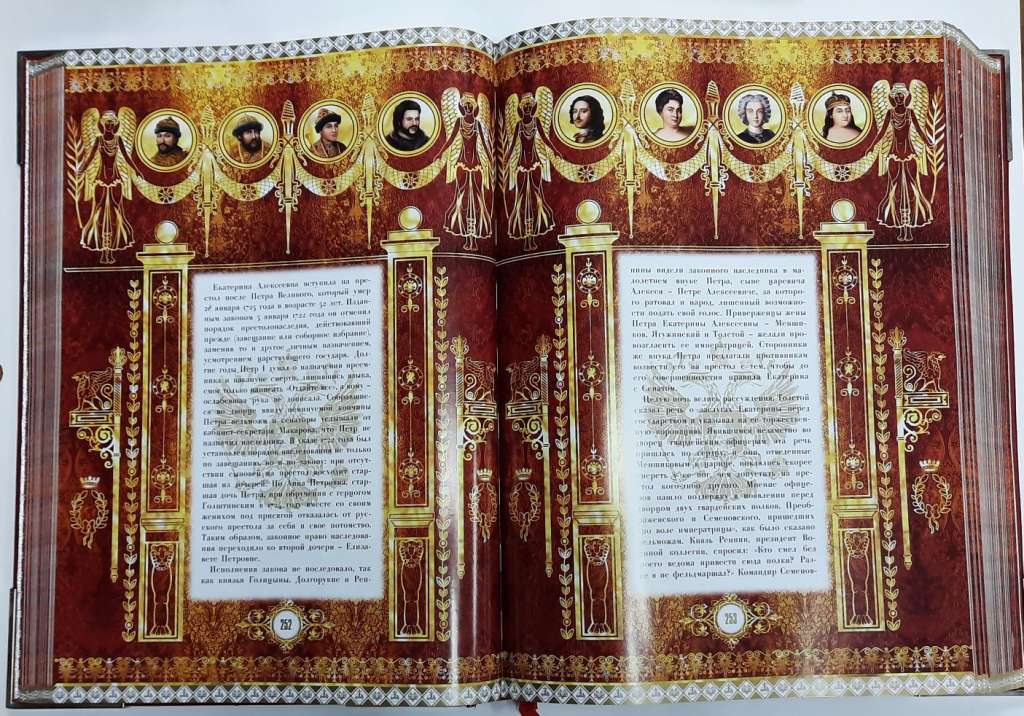 Екатерина Алексеевна вступила на пре-
стол после Петра Великого, который умер
28 января 1725 года в возрасте 52 лет. Издан-
ным законом 5 января 1722 года он отменил
порядок престолонаследия, действовавший
прежде (завещание или соборное избрание),
заменив то и другое личным назначением,
усмотрением царствующего государя. Дол-
гие годы Петр I думал о назначении преем-
ника и накануне смерти, лишившись языка,
смог только написать «Отдайте все», а кому –
ослабевшая рука не дописала. Собравшие-
ся во дворце ввиду неминуемой кончины
Петра вельможи и сенаторы услышали от
кабинет-секретаря Макарова, что Петр не
назначил наследника. В указе 1722 года был
установлен порядок наследования не только
по завещанию, но и по закону: при отсут-
ствии сыновей на престол восходит стар-
шая из дочерей. Но Анна Петровна, стар-
шая дочь Петра, при обручении с герцогом
Голштинским в вместе со своим
женихом под присягой отказалась от рус-
ского престола за себя и свое потомство.
Таким образом, законное право наследова-
ния переходило ко второй дочери – Елиза-
вете Петровне.
Исполнения закона не последовало, так
как князья Голицыны, Долгорукие и Реп-
252
нины видели законного наследника в ма-
лолетнем внуке Петра, сыне царевича
Алексея – Петре Алексеевиче, за которо-
го ратовал и народ, лишенный возможно-
сти подать свой голос. Приверженцы жены
Петра Екатерины Алексеевны – Менши-
ков, Ягужинский и Толстой – желали про-
возгласить ее императрицей. Сторонники
же внука Петра предлагали противникам
возвести его на престол с тем, чтобы до
его совершеннолетия правила Екатерина
с Сенатом.
Целую ночь велись рассуждения. Толстой
сказал речь о заслугах Екатерины перед
государством и указывал на ее торжествен-
ную коронацию. Явившимся незаметно во
дворец гвардейским офицерам эта речь
пришлась по сердцу, и они, отведенные
Меншиковым в сторону, поклялись скорее
умереть, чем допустить на пре-
стол кого-либо другого. Мнение офице-
ров нашло поддержку в появлении перед
дворцом двух гвардейских полков, Преоб-
раженского и Семеновского, пришедших
«по воле императрицы», как было сказано
вельможам. Князь Репнин, президент Во-
енной коллегии, спросил: «Кто смел без
моего ведома привести сюда полки? Раз-
ве я не фельдмаршал?» Командир Семенов-
253